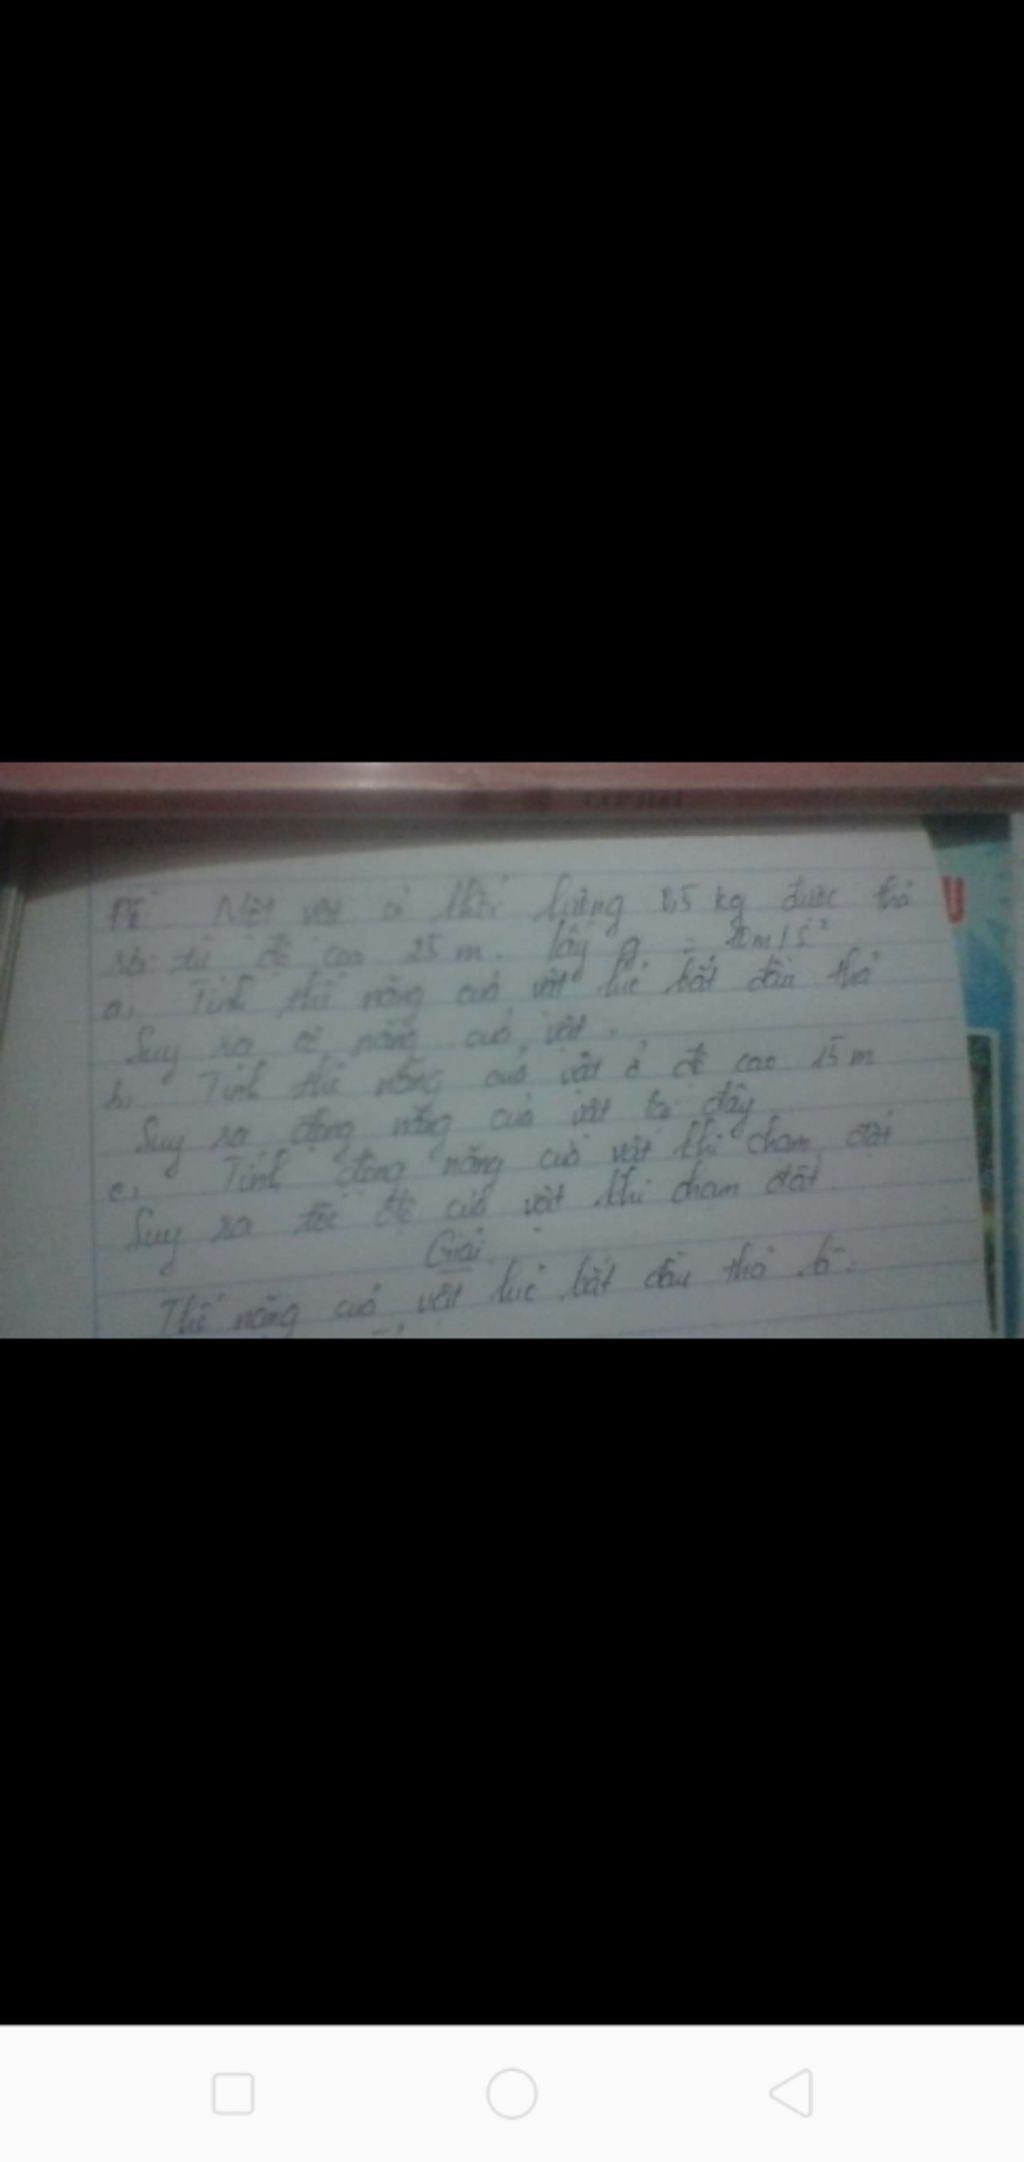 Đề: Một vật có khối lượng kg được thả
rơi từ độ cao 25 m. Lấy g = 10m/s²
a, Tính thế năng của vật lúc bắt đầu thả
Suy ra cơ năng của vật.
b, Tính thế năng của vật ở độ cao 15 m
Suy ra động năng của vật tại đây
c, Tính động năng của vật khi chạm đất
Suy ra tốc độ của vật khi chạm đất
Giải
Thế năng của vật lúc bắt đầu thả